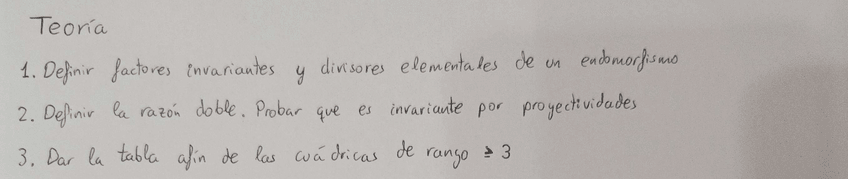 Teoría
1. Definir factores invariantes y divisores elementales de un endomorfismo
2. Definir la razón doble. Probar que es invariante por proyectividades
3. Dar la tabla afín de las cuádricas de rango ≥ 3